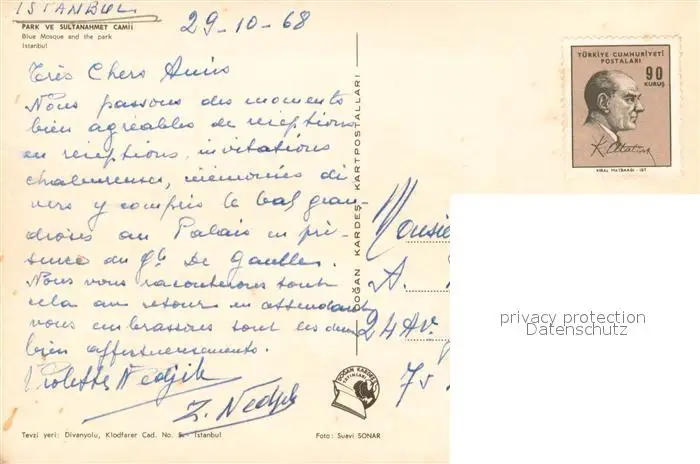 ISTANBUL
PARK VE SULTANAHMET CAMİİ
Blue Mosque and the park
Istanbul
29-10-68
Très Chers Amis
Nous passons des moments
bien agréables de réceptions
en réceptions, invitations
chaleureuses, cérémonies di
vers y compris le bal gran-
dioses au Palais en pré-
sence du Gl De Gaulle.
Nous vous raconterons tout
cela au retour en attendant
vous embrassons tout les deux
bien affectueusement.
Violette Nedjib
Z. Nedjib
Tevzi yeri: Divanyolu, Klodfarer Cad. No. 5 - Istanbul
Foto: Suavi SONAR
DOĞAN KARDEŞ KARTPOSTALLARI
DOĞAN KARDEŞ
YAYINLARI
TÜRKİYE CUMHURİYETİ
POSTALARI
90
KURUŞ
K. Atatürk
KIRAL MATBAASI - IST
Monsie
A.
24 Av.
75
privacy protection
Datenschutz